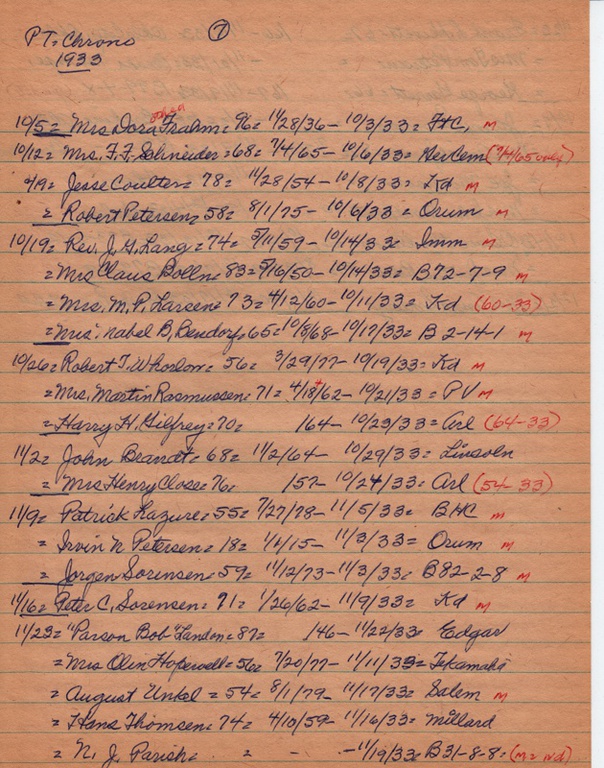 PT= Chrono ⑦
1933
10/5 = Mrs Dora Frahm = 96 = 11/28/36 - 10/3/33 = FHC, m
10/12 = Mrs. F. F. Schneider = 68 = 7/4/65 - 10/6/33 = Her Cem (7/4/65 only)
9/19 = Jesse Coulter = 78 = 11/28/54 - 10/8/33 = Kd m
= Robert Petersen = 58 = 8/1/75 - 10/6/33 = Orum m
10/19 = Rev. J. G. Lang = 74 = 5/11/59 - 10/14/33 = Imm m
= Mrs Claus Bolln = 83 = 5/16/50 - 10/14/33 = B72-7-9 m
= Mrs, M. P. Larsen = 73 = 4/12/60 - 10/11/33 = Kd (60-33)
= Mrs. Mabel B, Bendorf = 65 = 10/8/68 - 10/17/33 = B 2-14-1 m
10/26 = Robert T. Whorlow = 56 = 3/29/77 - 10/19/33 = Kd m
= Mrs, Martin Rasmussen = 71 = 4/18/62 - 10/21/33 = PV m
= Harry H, Gilfrey = 70 = /64 - 10/23/33 = Arl (64-33)
11/2 = John Brandt = 68 = 11/2/64 - 10/29/33 = Lincoln
= Mrs Henry Close = 76 = /57 - 10/24/33 = Arl (54-33)
11/9 = Patrick Kazure = 55 = 7/27/78 - 11/5/33 = BHC m
= Irvin N Petersen = 18 = 1/1/15 - 11/3/33 = Orum m
= Jorgen Sorensen = 59 = 11/12/73 - 11/3/33 = B82-2-8 m
11/16 = Peter C, Sorensen = 71 = 1/26/62 - 11/9/33 = Kd m
11/23 = "Parson Bob" Landon = 87 = /46 - 11/22/33 = Edgar
= Mrs Olin Hopewell = 56 = 7/20/77 - 11/11/33 = Tekamah
= August Unkel = 54 = 8/1/79 - 11/17/33 = Salem m
= Hans Thomsen = 74 = 4/10/59 - 11/16/33 = Millard
= N. J. Parish = = - - - 11/19/33 = B31-8-8 = (m = nd)